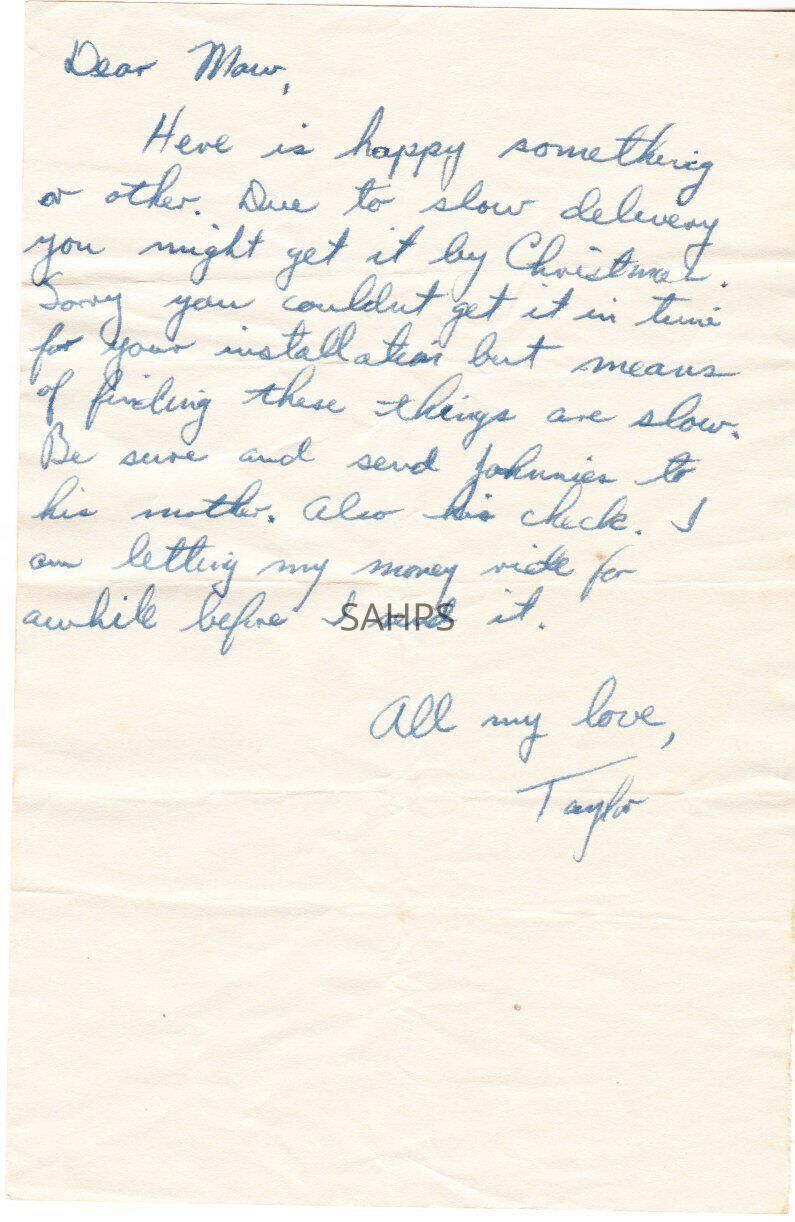 Dear Maw,
Here is happy something
or other. Due to slow delivery
you might get it by Christmas.
Sorry you couldnt get it in time
for your installation but means
of finding these things are slow.
Be sure and send Johnnies to
his mother. Also his check. I
am letting my money ride for
awhile before I send it.
SAHPS
All my love,
Taylor